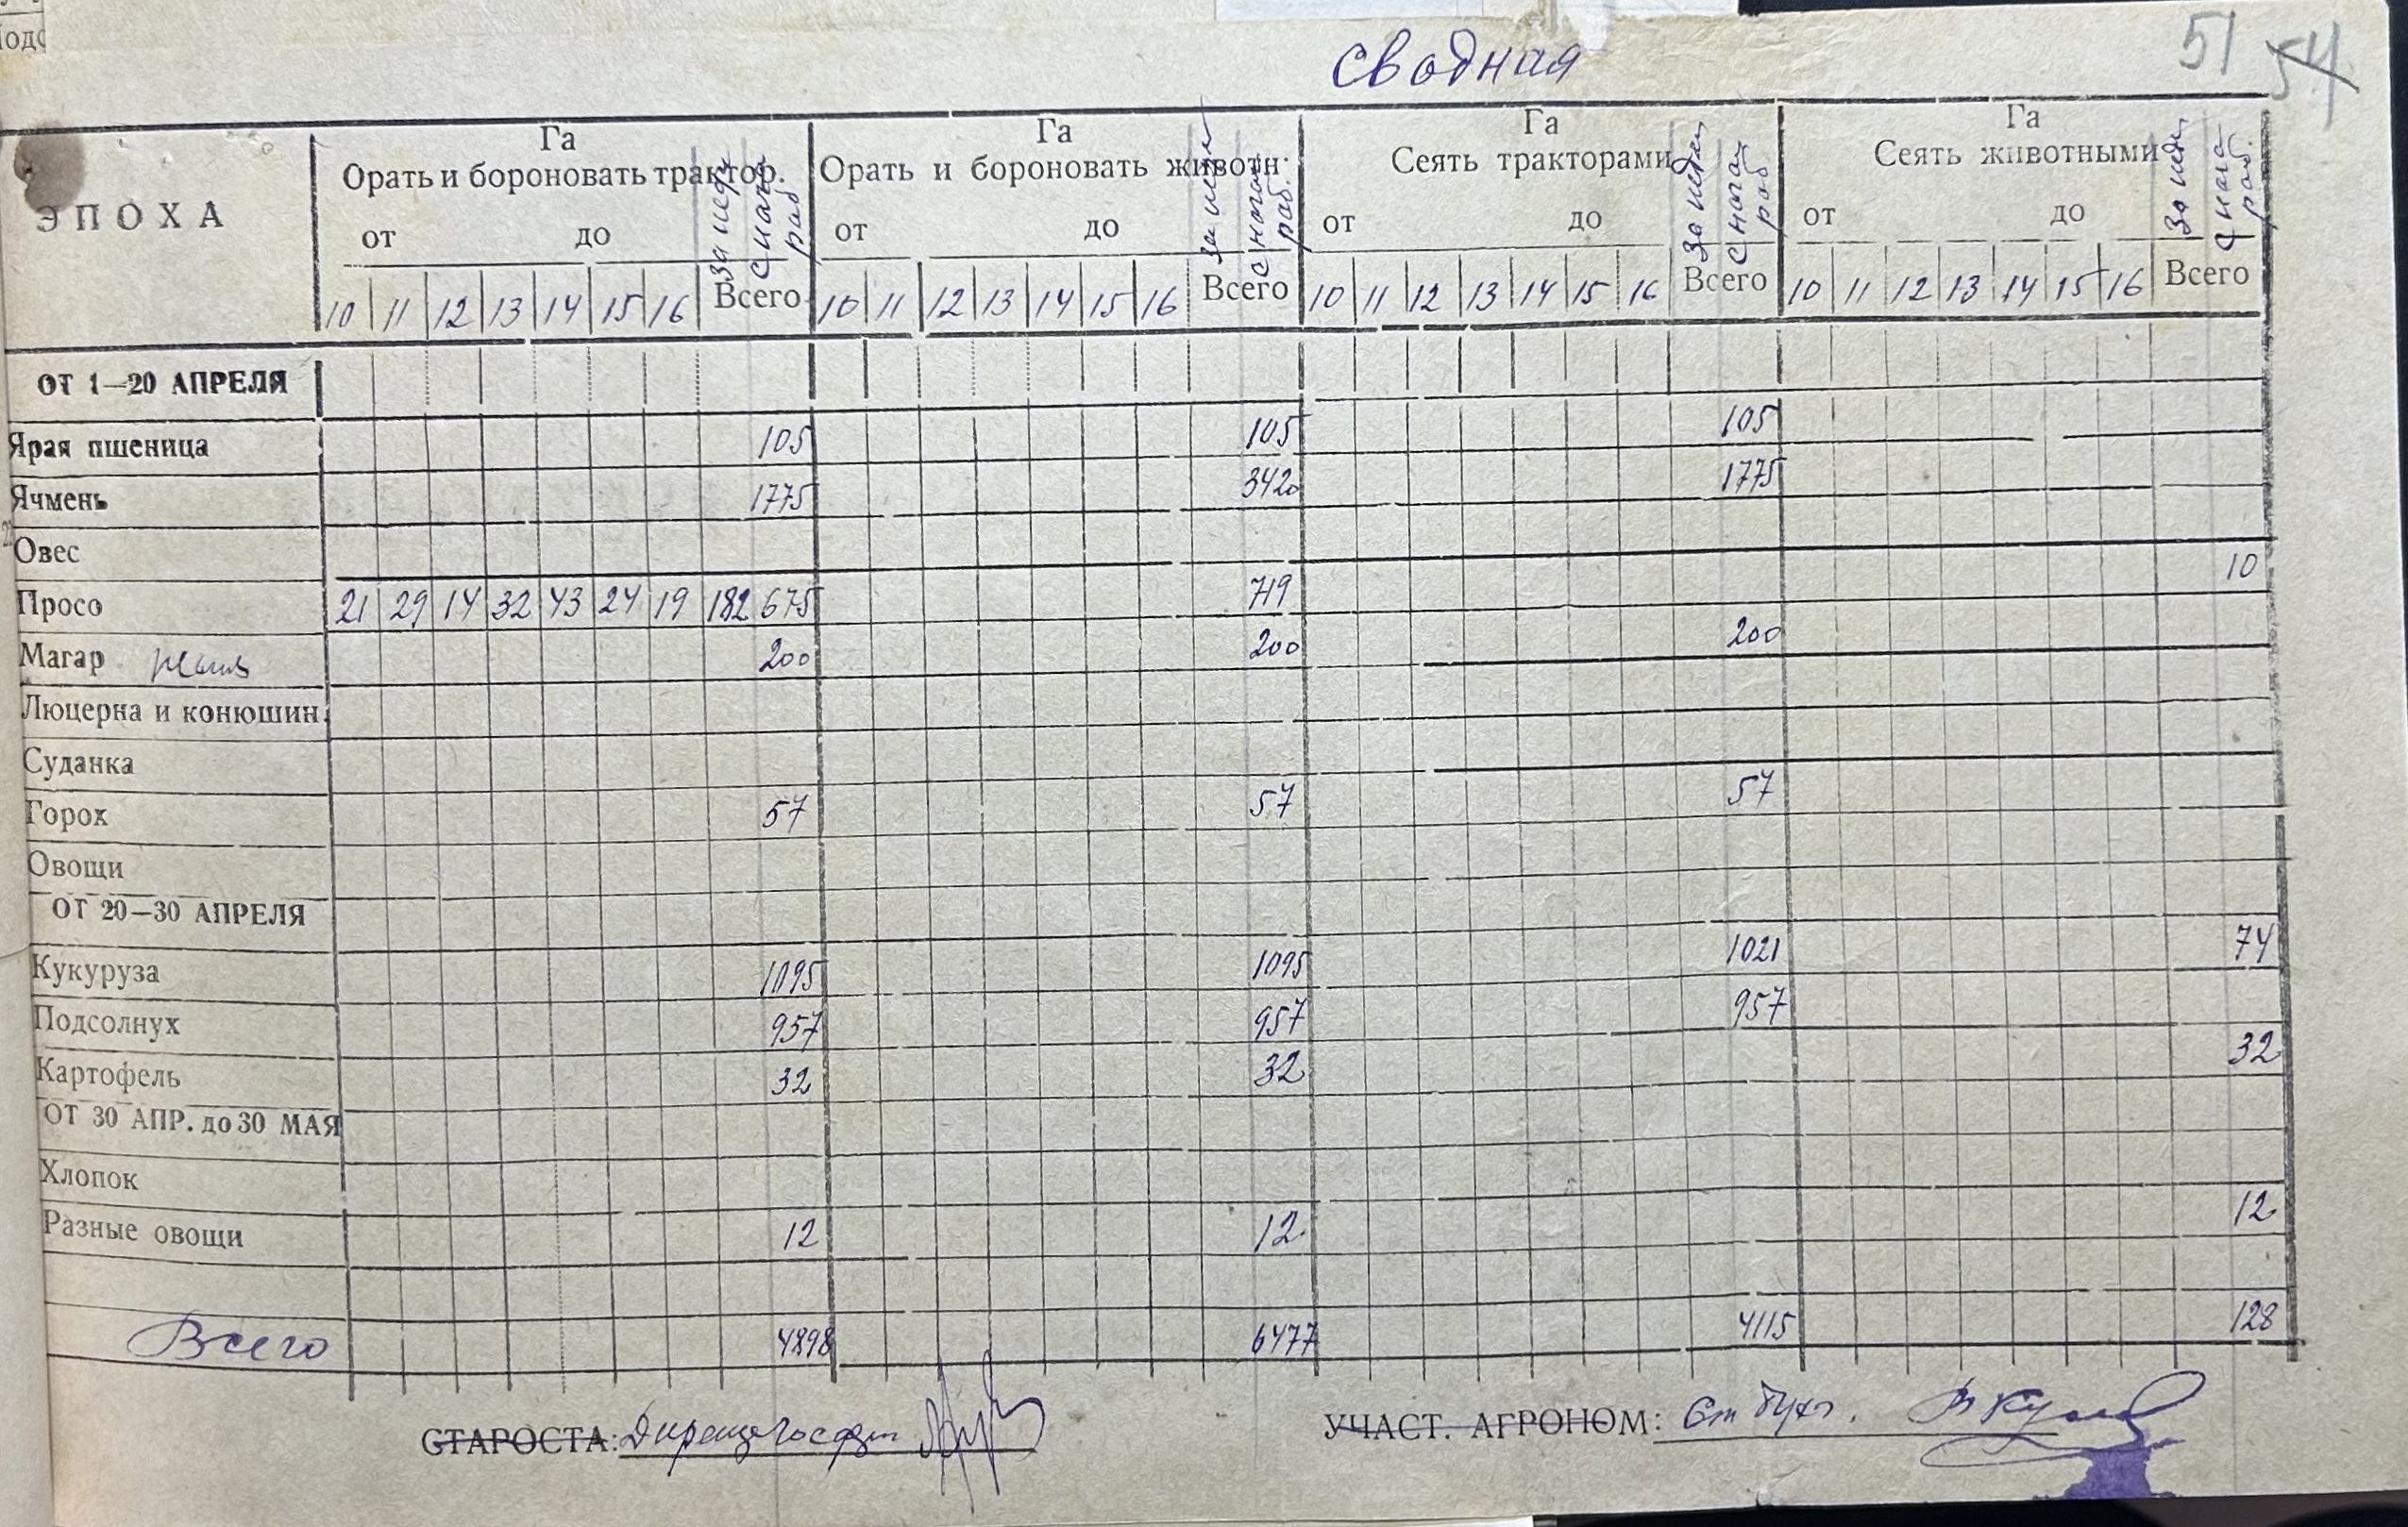 Сводная
51 54
ЭПОХА
Га Га Га Га
Орать и бороновать трактор. Орать и бороновать животн. Сеять тракторами Сеять животными
от до от до от до от до
за нед. с нача раб за нед с нач раб. за нед с нача раб за нед с нача раб.
10 11 12 13 14 15 16 Всего 10 11 12 13 14 15 16 Всего 10 11 12 13 14 15 16 Всего 10 11 12 13 14 15 16 Всего
ОТ 1—20 АПРЕЛЯ
Ярая пшеница 105 105 105
Ячмень 1775 3420 1775
Овес
Просо 21 29 14 32 43 24 19 182 675 719 10
Магар 200 200 200
Люцерна и конюшин.
Суданка
Горох 57 57 57
Овощи
ОТ 20—30 АПРЕЛЯ
Кукуруза 1095 1095 1021 74
Подсолнух 957 957 957
Картофель 32 32 32
ОТ 30 АПР. до 30 МАЯ
Хлопок
Разные овощи 12 12 12
Всего 4898 6477 4115 128
СТАРОСТА: УЧАСТ. АГРОНОМ: Ст бухг.